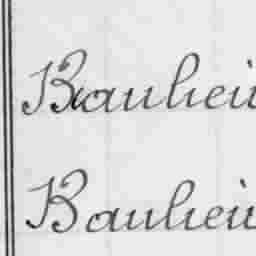 Baulieu
Baulieu